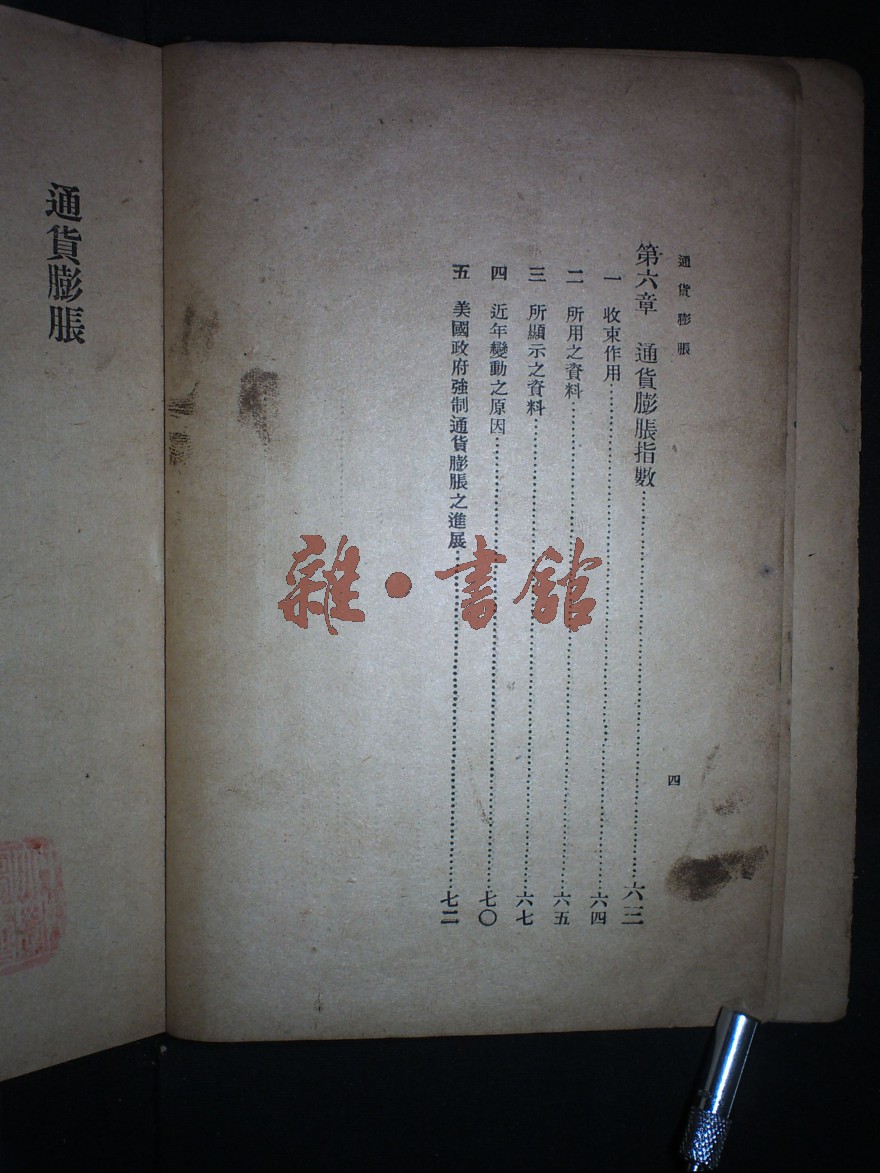 通貨膨脹
四
第六章　通貨膨脹指數……六三
一　收束作用……六四
二　所用之資料……六五
三　所顯示之資料……六七
四　近年變動之原因……七〇
五　美國政府強制通貨膨脹之進展……七二
通貨膨脹
雜·書館